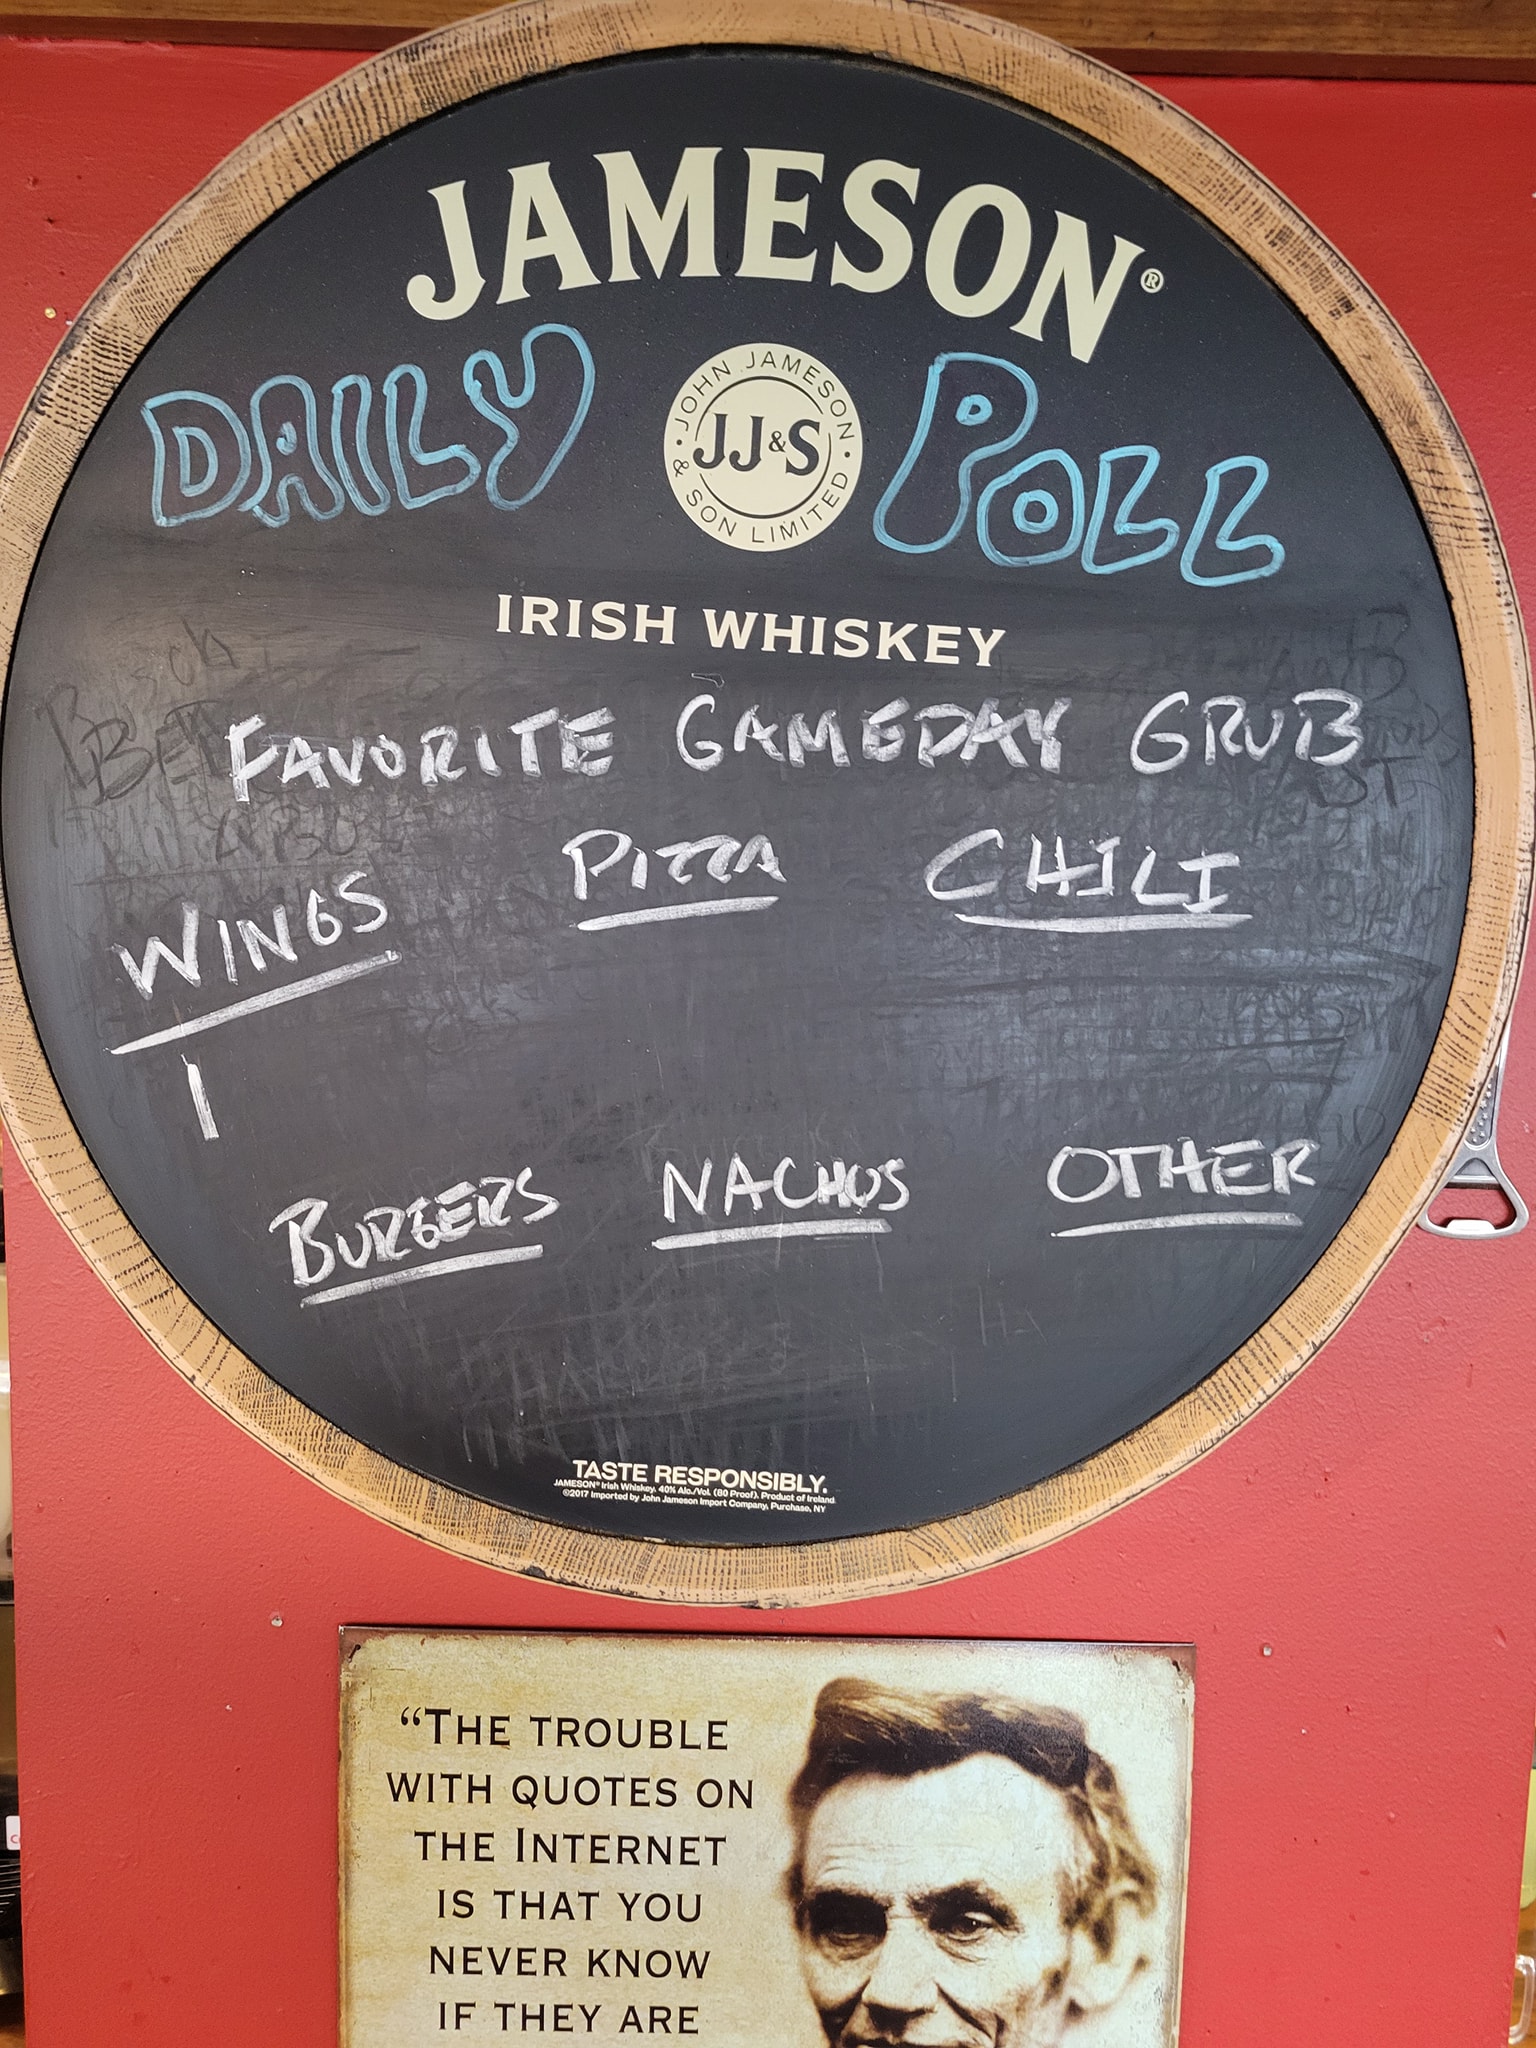 JAMESON®
DAILY POLL
JOHN JAMESON & SON LIMITED
JJ&S
IRISH WHISKEY
FAVORITE GAMEDAY GRUB
WINGS PIZZA CHILI
BURGERS NACHOS OTHER
TASTE RESPONSIBLY.
JAMESON® Irish Whiskey. 40% Alc./Vol. (80 Proof). Product of Ireland.
©2017 Imported by John Jameson Import Company, Purchase, NY
“THE TROUBLE
WITH QUOTES ON
THE INTERNET
IS THAT YOU
NEVER KNOW
IF THEY ARE